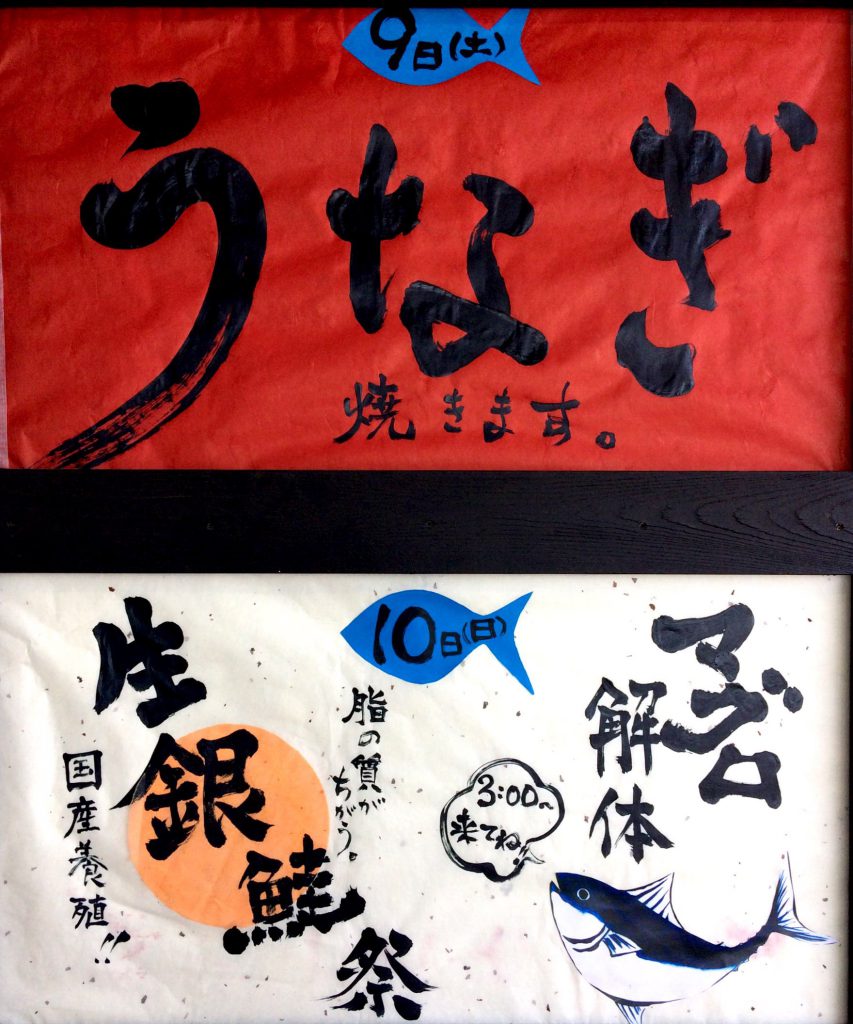 9日(土)
うなぎ
焼きます。
10日(日)
マグロ
解体
3:00~
来てね!
脂の質が
ちがう。
生銀鮭祭
国産養殖!!